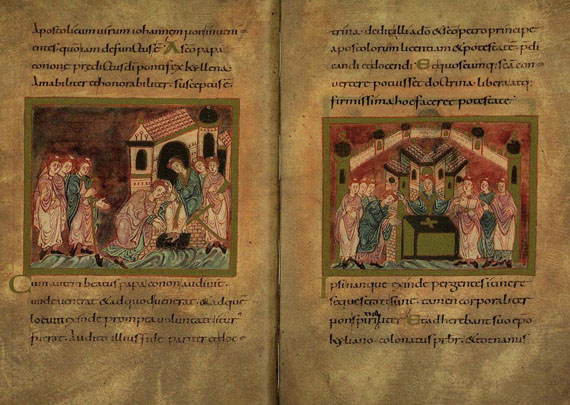 Apostolicum uirum iohannem ponunueni
entes quoram defunctusē. A sco papa
conone predictus dī pontifex kyllena
Amabiliter et honorabiliter susceptus ē
Cum autē beatus papa conon audiuit
unde uenerat & ad quod uenerat. & ad quē
locum exinde prompta uoluntate iturꝰ
fuerat. Audito illius fide pariter et doc
trina. dedit illi a dō & sco petro principe
apostolorum licentiam & potestatē. p̄di
candi et docendi. Et quoscumq; scā con
uertere potuisset doctrina. libera atq;
firmissima hoc faceret potestate
Ipsi namque exinde pergentes itinere
se quesierat sunt. tamen corporaliter
non spiritaliter. Et adherebant suo epo
kyliano. colonatus prbr. & totnanus